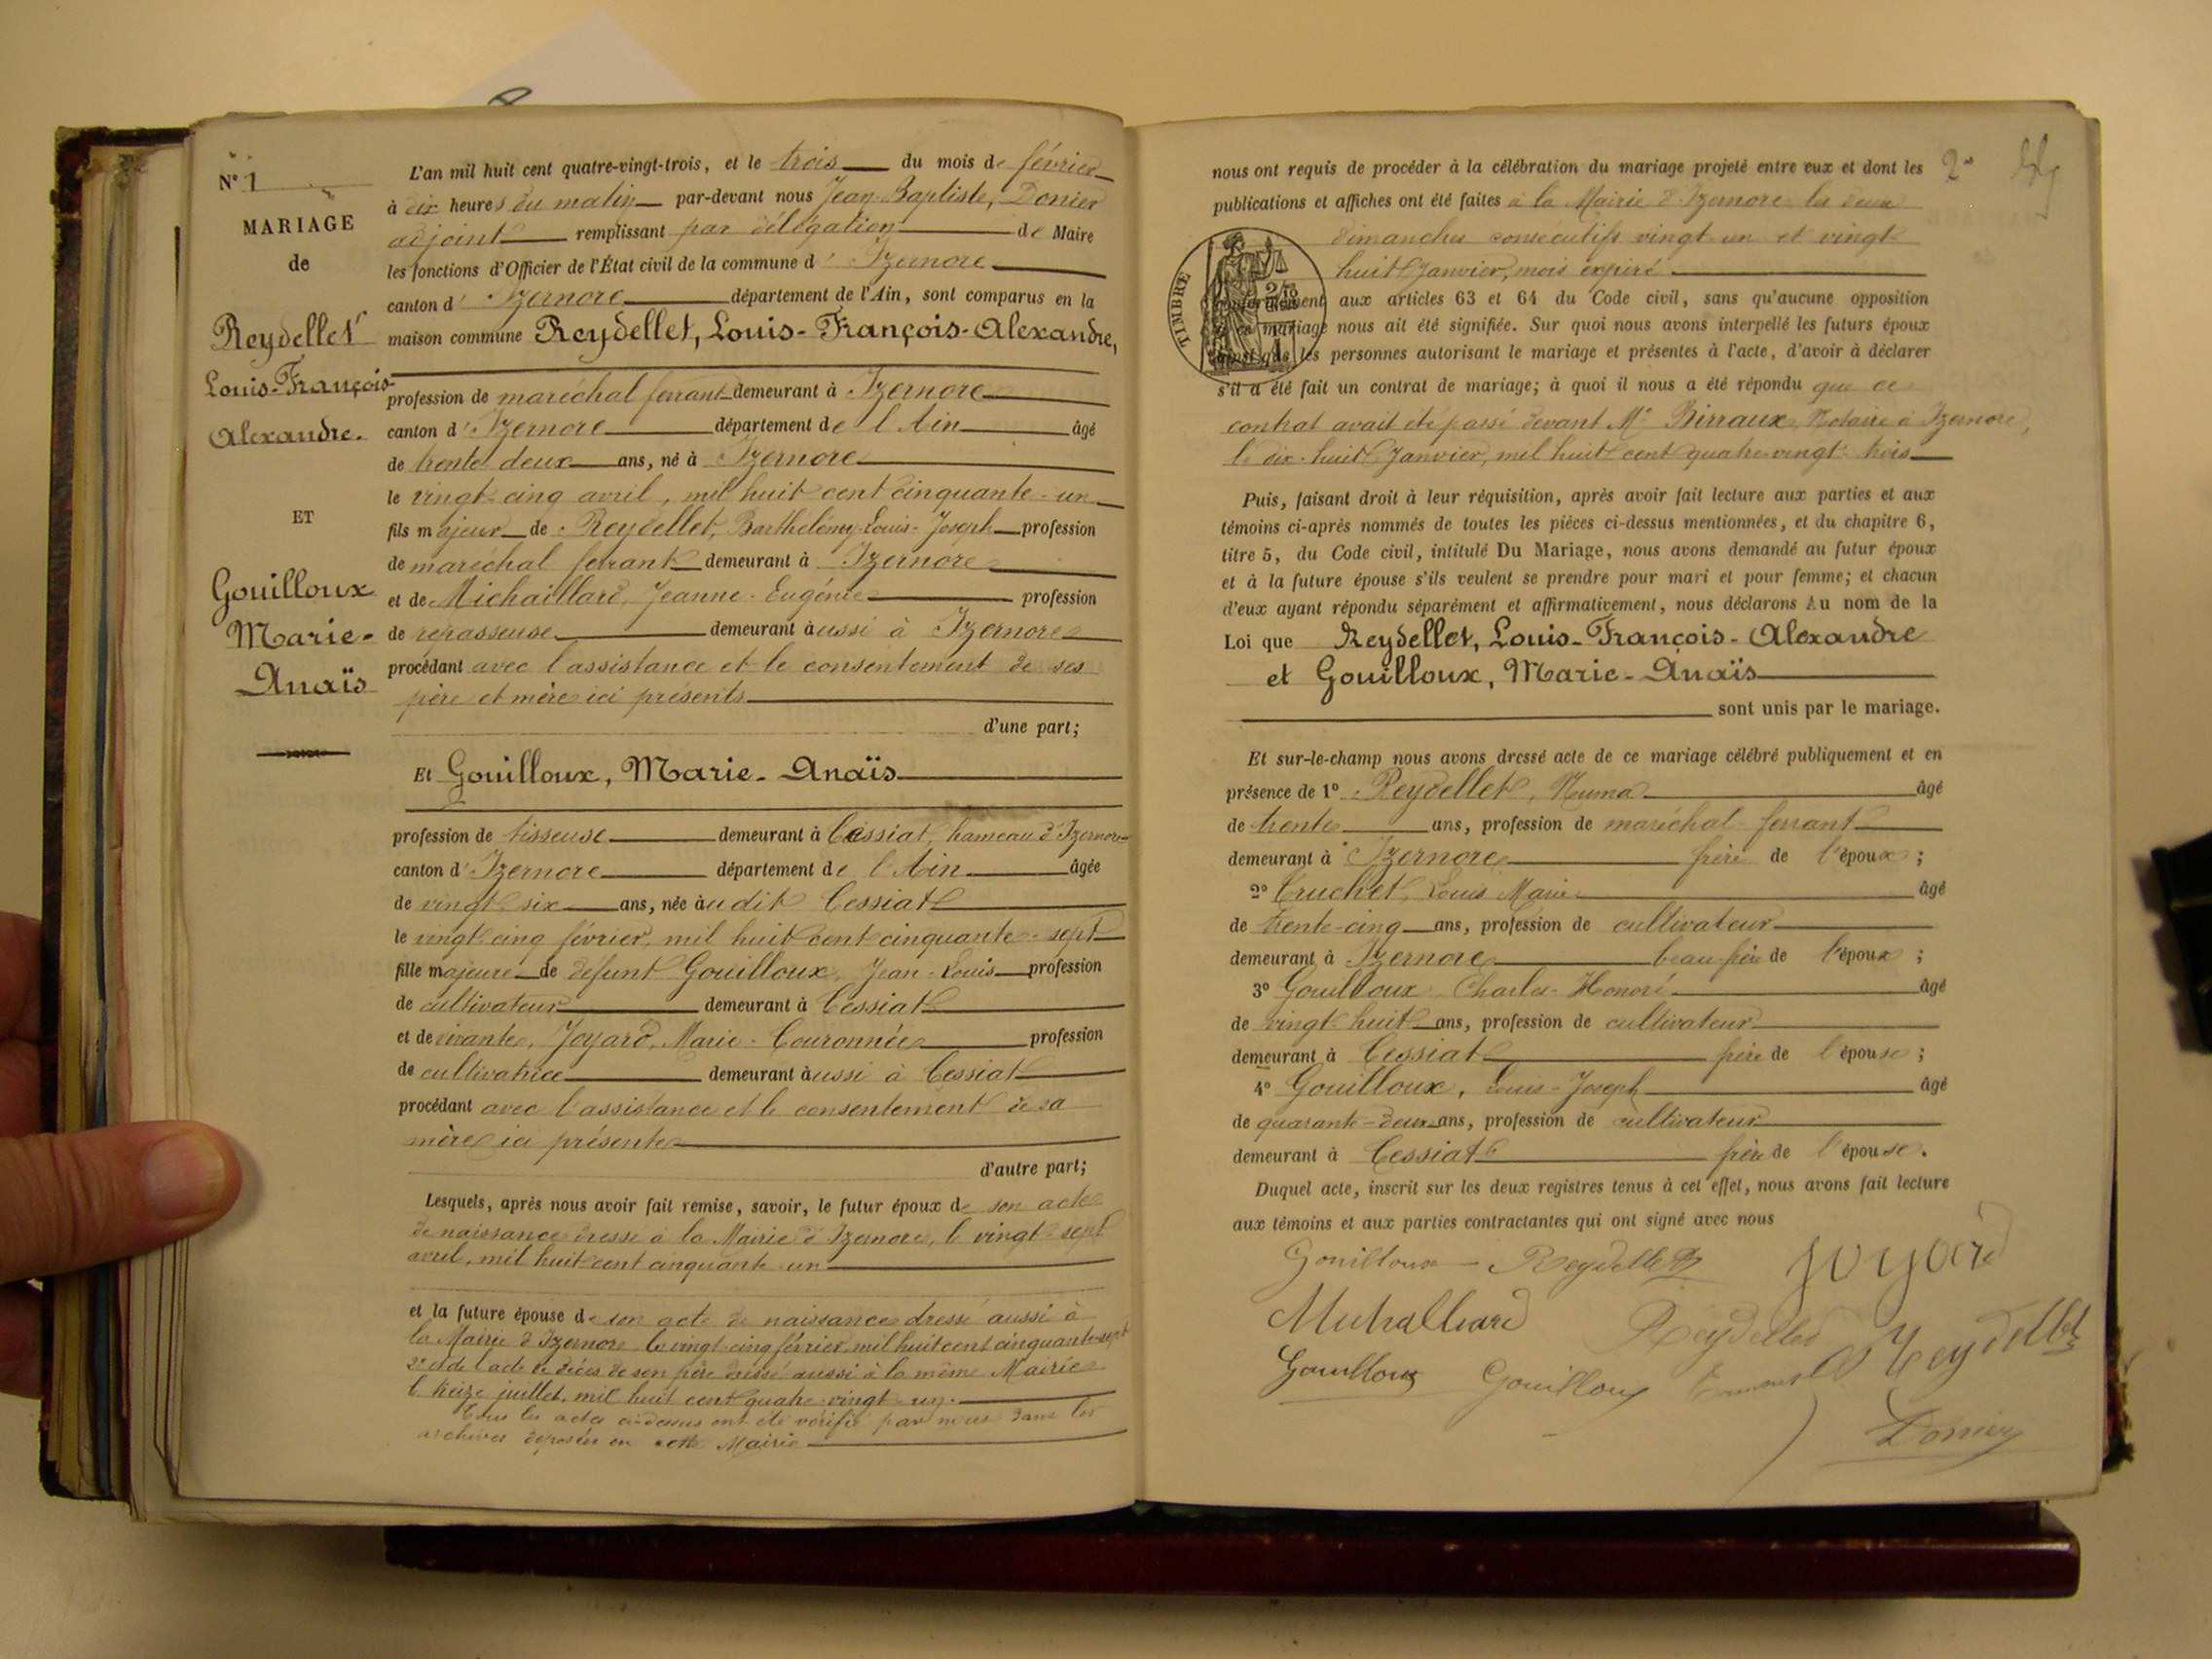 N° 1
MARIAGE
de
Reydellet
Louis-François-
Alexandre.
ET
Gouilloux
Marie-
Anaïs
L'an mil huit cent quatre-vingt-trois, et le trois du mois de février
à dix heures du matin par-devant nous Jean-Baptiste, Donier
adjoint remplissant par délégation de Maire
les fonctions d'Officier de l'État civil de la commune d'Izernore
canton d'Izernore département de l'Ain, sont comparus en la
maison commune Reydellet, Louis-François-Alexandre,
profession de maréchal ferrant demeurant à Izernore
canton d'Izernore département de l'Ain âgé
de trente deux ans, né à Izernore
le vingt-cinq avril, mil huit cent cinquante-un
fils majeur de Reydellet, Barthélemy-Louis-Joseph profession
de maréchal ferrant demeurant à Izernore
et de Michaillard, Jeanne-Eugénie profession
de repasseuse demeurant aussi à Izernore
procédant avec l'assistance et le consentement de ses
père et mère ici présents
d'une part;
Et Gouilloux, Marie-Anaïs
profession de tisseuse demeurant à Cessiat, hameau d'Izernore
canton d'Izernore département de l'Ain âgée
de vingt-six ans, née audit Cessiat
le vingt-cinq février, mil huit cent cinquante-sept
fille majeure de défunt Gouilloux, Jean-Louis profession
de cultivateur demeurant à Cessiat
et de vivante, Joyard, Marie-Couronnée profession
de cultivatrice demeurant aussi à Cessiat
procédant avec l'assistance et le consentement de sa
mère ici présente
d'autre part;
Lesquels, après nous avoir fait remise, savoir, le futur époux de son acte
de naissance dressé à la Mairie d'Izernore, le vingt-sept
avril, mil huit cent cinquante-un
et la future épouse de son acte de naissance dressé aussi à
la Mairie d'Izernore le vingt-cinq février mil huit cent cinquante-sept
2° et de l'acte de décès de son père dressé aussi à la même Mairie
le treize juillet, mil huit cent quatre-vingt-un.
Tous les actes ci-dessus ont été vérifiés par nous dans les
archives déposées en cette Mairie
2°
nous ont requis de procéder à la célébration du mariage projeté entre eux et dont les
publications et affiches ont été faites à la Mairie d'Izernore les deux
dimanches consécutifs vingt-un et vingt-
huit Janvier, mois expiré
TIMBRE
conformément aux articles 63 et 64 du Code civil, sans qu'aucune opposition
à ce mariage nous ait été signifiée. Sur quoi nous avons interpellé les futurs époux
ainsi que les personnes autorisant le mariage et présentes à l'acte, d'avoir à déclarer
s'il a été fait un contrat de mariage; à quoi il nous a été répondu que ce
contrat avait été passé devant Me Birraux, Notaire à Izernore,
le dix-huit Janvier, mil huit cent quatre-vingt-trois
Puis, faisant droit à leur réquisition, après avoir fait lecture aux parties et aux
témoins ci-après nommés de toutes les pièces ci-dessus mentionnées, et du chapitre 6,
titre 5, du Code civil, intitulé Du Mariage, nous avons demandé au futur époux
et à la future épouse s'ils veulent se prendre pour mari et pour femme; et chacun
d'eux ayant répondu séparément et affirmativement, nous déclarons Au nom de la
Loi que Reydellet, Louis-François-Alexandre
et Gouilloux, Marie-Anaïs
sont unis par le mariage.
Et sur-le-champ nous avons dressé acte de ce mariage célébré publiquement et en
présence de 1° Reydellet, Numa âgé
de trente ans, profession de maréchal-ferrant
demeurant à Izernore frère de l'époux;
2° Truchet, Louis Marie âgé
de trente-cinq ans, profession de cultivateur
demeurant à Izernore beau-frère de l'époux;
3° Gouilloux Charles-Honoré âgé
de vingt-huit ans, profession de cultivateur
demeurant à Cessiat frère de l'épouse;
4° Gouilloux, Louis-Joseph âgé
de quarante-deux ans, profession de cultivateur
demeurant à Cessiat frère de l'épouse.
Duquel acte, inscrit sur les deux registres tenus à cet effet, nous avons fait lecture
aux témoins et aux parties contractantes qui ont signé avec nous
Gouilloux Reydellet Joyard
Michalliard Reydellet Reydellet
Gouilloux Gouilloux
Donier